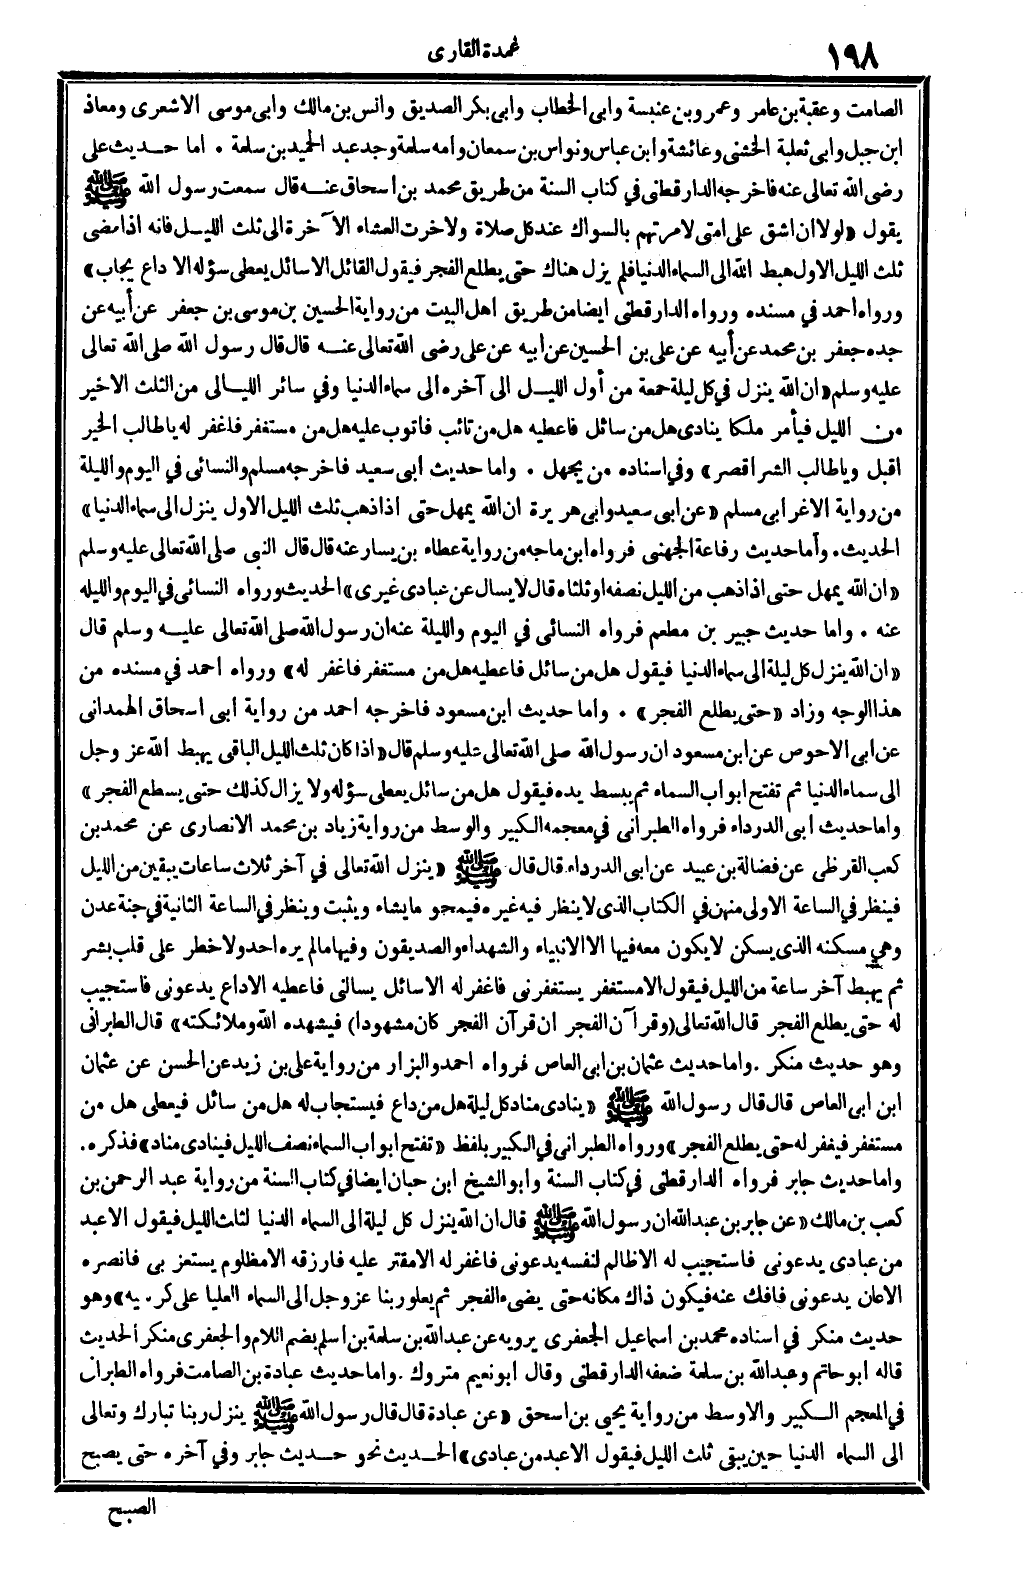 ١٩٨
عمدة القارى
الصامت وعقبة بن عامر وعمرو بن عنبسة وابى الخطاب وابى بكر الصديق وانس بن مالك وابى موسى الاشعرى ومعاذ
ابن جبل وابى ثعلبة الخشنى وعائشة وابن عباس ونواس بن سمعان وامه سلمة وجد عبد الحميد بن سلمة . اما حديث على
رضى الله تعالى عنه فاخرجه الدارقطنى في كتاب السنة من طريق محمد بن اسحاق عنه قال سمعت رسول الله ﷺ
يقول «لولا ان اشق على امتى لامرتهم بالسواك عند كل صلاة ولاخرت العشاء الآخرة الى ثلث الليل فانه اذا مضى
ثلث الليل الاول هبط الله الى السماء الدنيا فلم يزل هناك حتى يطلع الفجر فيقول القائل الا سائل يعطى سؤله الا داع يجاب»
ورواه احمد في مسنده ورواه الدارقطنى ايضا من طريق اهل البيت من رواية الحسين بن موسى بن جعفر عن أبيه عن
جده جعفر بن محمد عن أبيه عن على بن الحسين عن أبيه عن على رضى الله تعالى عنه قال قال رسول الله صلى الله تعالى
عليه وسلم «ان الله ينزل في كل ليلة جمعة من أول الليل الى آخره الى سماء الدنيا وفي سائر الليالى من الثلث الاخير
من الليل فيأمر ملكا ينادى هل من سائل فاعطيه هل من تائب فاتوب عليه هل من مستغفر فاغفر له يا طالب الخير
اقبل ويا طالب الشر اقصر» وفي اسناده من يجهل . واما حديث ابى سعيد فاخرجه مسلم والنسائى في اليوم والليلة
من رواية الاغر ابى مسلم «عن ابى سعيد وابى هريرة ان الله يمهل حتى اذا ذهب ثلث الليل الاول ينزل الى سماء الدنيا»
الحديث . وأما حديث رفاعة الجهنى فرواه ابن ماجه من رواية عطاء بن يسار عنه قال قال النبى صلى الله تعالى عليه وسلم
«ان الله يمهل حتى اذا ذهب من الليل نصفه او ثلثاه قال لا يسال عن عبادى غيرى» الحديث ورواه النسائى في اليوم والليله
عنه . واما حديث جبير بن مطعم فرواه النسائى في اليوم والليلة عنه ان رسول الله صلى الله تعالى عليه وسلم قال
«ان الله ينزل كل ليلة الى سماء الدنيا فيقول هل من سائل فاعطيه هل من مستغفر فاغفر له» ورواه احمد في مسنده من
هذا الوجه وزاد «حتى يطلع الفجر» . واما حديث ابن مسعود فاخرجه احمد من رواية ابى اسحاق الهمدانى
عن ابى الاحوص عن ابن مسعود ان رسول الله صلى الله تعالى عليه وسلم قال «اذا كان ثلث الليل الباقى يهبط الله عز وجل
الى سماء الدنيا ثم تفتح ابواب السماء ثم يبسط يده فيقول هل من سائل يعطى سؤله ولا يزال كذلك حتى يسطع الفجر»
واما حديث ابى الدرداء فرواه الطبرانى في معجمه الكبير والوسط من رواية زياد بن محمد الانصارى عن محمد بن
كعب القرظى عن فضالة بن عبيد عن ابى الدرداء قال قال ﷺ «ينزل الله تعالى في آخر ثلاث ساعات يبقين من الليل
فينظر في الساعة الاولى منهن في الكتاب الذى لا ينظر فيه غيره فيمحو ما يشاء ويثبت وينظر في الساعة الثانية في جنة عدن
وهي مسكنه الذى يسكن لا يكون معه فيها الا الانبياء والشهداء والصديقون وفيها ما لم يره احد ولا خطر على قلب بشر
ثم يهبط آخر ساعة من الليل فيقول الا مستغفر يستغفرنى فاغفر له الا سائل يسالنى فاعطيه الا داع يدعونى فاستجيب
له حتى يطلع الفجر قال الله تعالى (وقرآن الفجر ان قرآن الفجر كان مشهودا) فيشهده الله وملائكته» قال الطبرانى
وهو حديث منكر . واما حديث عثمان بن ابى العاص فرواه احمد والبزار من رواية على بن زيد عن الحسن عن عثمان
ابن ابى العاص قال قال رسول الله ﷺ «ينادى مناد كل ليلة هل من داع فيستجاب له هل من سائل فيعطى هل من
مستغفر فيغفر له حتى يطلع الفجر» ورواه الطبرانى في الكبير بلفظ «تفتح ابواب السماء نصف الليل فينادى مناد» فذكره .
واما حديث جابر فرواه الدارقطنى في كتاب السنة وابو الشيخ ابن حبان ايضا في كتاب السنة من رواية عبد الرحمن بن
كعب بن مالك «عن جابر بن عبد الله ان رسول الله ﷺ قال ان الله ينزل كل ليلة الى السماء الدنيا لثلث الليل فيقول الا عبد
من عبادى يدعونى فاستجيب له الا ظالم لنفسه يدعونى فاغفر له الا مقتر عليه فارزقه الا مظلوم يستعز بى فانصره
الا عان يدعونى فافك عنه فيكون ذاك مكانه حتى يضىء الفجر ثم يعلو ربنا عز وجل الى السماء العليا على كرسيه» وهو
حديث منكر في اسناده محمد بن اسماعيل الجعفرى يرويه عن عبد الله بن سلمة بن اسلم بضم اللام والجعفرى منكر الحديث
قاله ابو حاتم وعبد الله بن سلمة ضعفه الدارقطنى وقال ابو نعيم متروك . واما حديث عبادة بن الصامت فرواه الطبرانى
في المعجم الكبير والاوسط من رواية يحيى بن اسحق «عن عبادة قال قال رسول الله ﷺ ينزل ربنا تبارك وتعالى
الى السماء الدنيا حين يبقى ثلث الليل فيقول الا عبد من عبادى» الحديث نحو حديث جابر وفي آخره حتى يصبح
الصبح